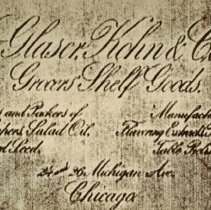 Glaser, Kohn & C
Grocers Shelf Goods
and Packers of
Salad Oil.
Manufac
Flavoring Extracts
Table
24 and 26 Michigan Ave.
Chicago